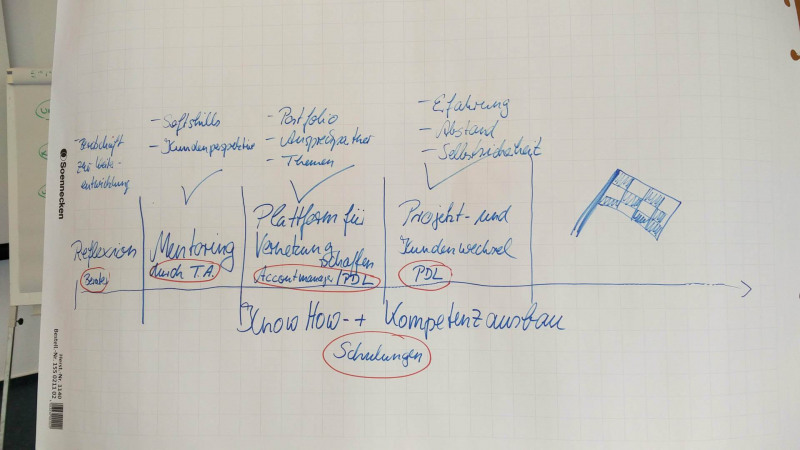 - Softskills
- Kundenperspektive
- Portfolio
- Ansprechpartner
- Themen
- Erfahrung
- Abstand
- Selbstsicherheit
- Bereitschaft
zur Weiter-
entwicklung
Reflexion
Berater
Mentoring
durch T.A.
Plattform für
Vernetzung
schaffen
Accountmanager/PDL
Projekt- und
Kundenwechsel
PDL
Know How- + Kompetenzausbau
Schulungen
Soennecken
Bestell-Nr. 155 0211 02
Herst.-Nr. 1140